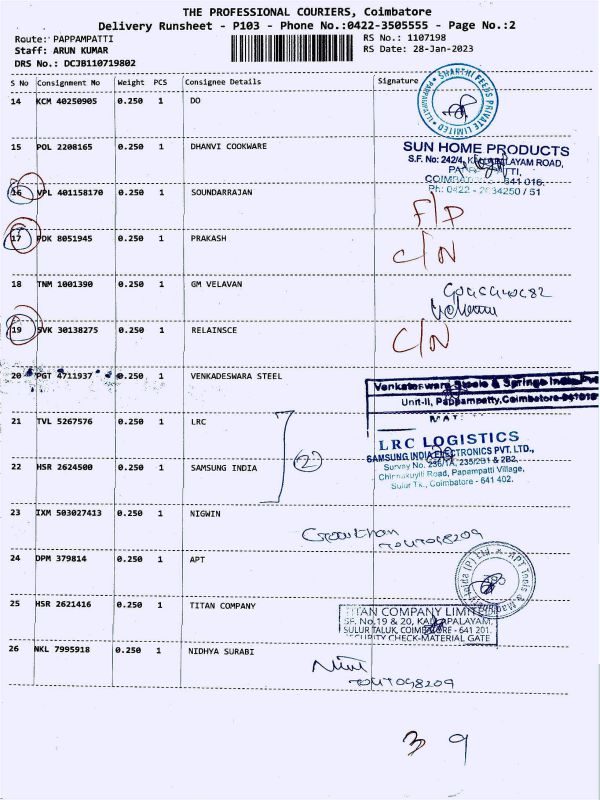 THE PROFESSIONAL COURIERS, Coimbatore
Delivery Runsheet - P103 - Phone No.:0422-3505555 - Page No.:2
Route: PAPPAMPATTI
Staff: ARUN KUMAR
DRS No.: DCJB110719802
RS No.: 1107198
RS Date: 28-Jan-2023
S No Consignment No Weight PCS Consignee Details Signature
14 KCM 40250905 0.250 1 DO
SHANTHI FEEDS PRIVATE LIMITED
15 POL 2208165 0.250 1 DHANVI COOKWARE
SUN HOME PRODUCTS
S.F. No: 242/4, ROAD,
641 016,
Ph: 0422 - 34250 / 51
16 VPL 401158170 0.250 1 SOUNDARRAJAN
F/D
17 PDK 8051945 0.250 1 PRAKASH
C/N
18 TNM 1001390 0.250 1 GM VELAVAN
19 SVK 30138275 0.250 1 RELAINSCE
C/N
20 PGT 4711937 0.250 1 VENKADESWARA STEEL
Venkateswara Steels & Springs India Pvt
Unit-II, Pappampatty, Coimbatore-641016
21 TVL 5267576 0.250 1 LRC
2
LRC LOGISTICS
SAMSUNG INDIA ELECTRONICS PVT. LTD.,
Survey No. 236/1A, 235/2B1 & 2B2,
Chinnakuyili Road, Papampatti Village,
Sulur Tk., Coimbatore - 641 402.
22 HSR 2624500 0.250 1 SAMSUNG INDIA
23 IXM 503027413 0.250 1 NIGWIN
24 DPM 379814 0.250 1 APT
25 HSR 2621416 0.250 1 TITAN COMPANY
TITAN COMPANY LIMITED
SF. No.19 & 20, KADAPALAYAM,
SULUR TALUK, COIMBATORE - 641 201.
SECURITY CHECK-MATERIAL GATE
26 NKL 7995918 0.250 1 NIDHYA SURABI
3 9